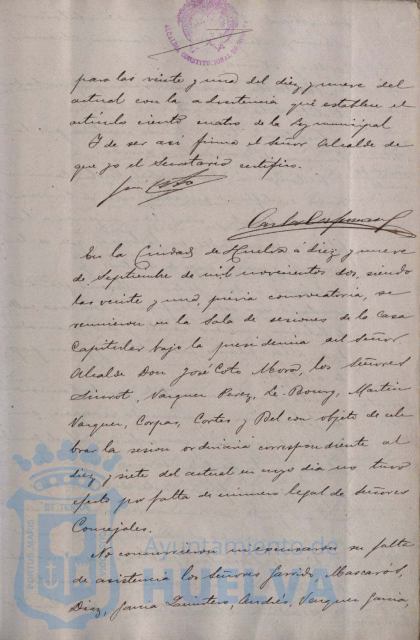 ALCALDIA CONSTITUCIONAL DE
para las veinte y una del diez y nueve del
actual con la advertencia que establece el
artículo ciento cuatro de la ley municipal
Y de ser así firma el Señor Alcalde de
que yo el Secretario certifico.
En la Ciudad de Huelva á diez y nueve
de Septiembre de mil novecientos dos, siendo
las veinte y una, previa convocatoria, se
reunieron en la Sala de sesiones de la Casa
Capitular bajo la presidencia del Señor
Alcalde Don José Coto Mora, los Señores
Vazquez Perez, Le-Bourg, Martin
Vazquez, Corpas, Cortes y Bel con objeto de cele
brar la sesion ordinaria correspondiente al
diez y siete del actual en cuyo dia no tuvo
efecto por falta de numero legal de Señores
Concejales.
No concurrieron ni excusaron su falta
de asistencia los Señores Garrido, Mascarós,
Diaz, Garcia Quintero, Vazquez Garcia
Ayuntamiento de
HUELVA